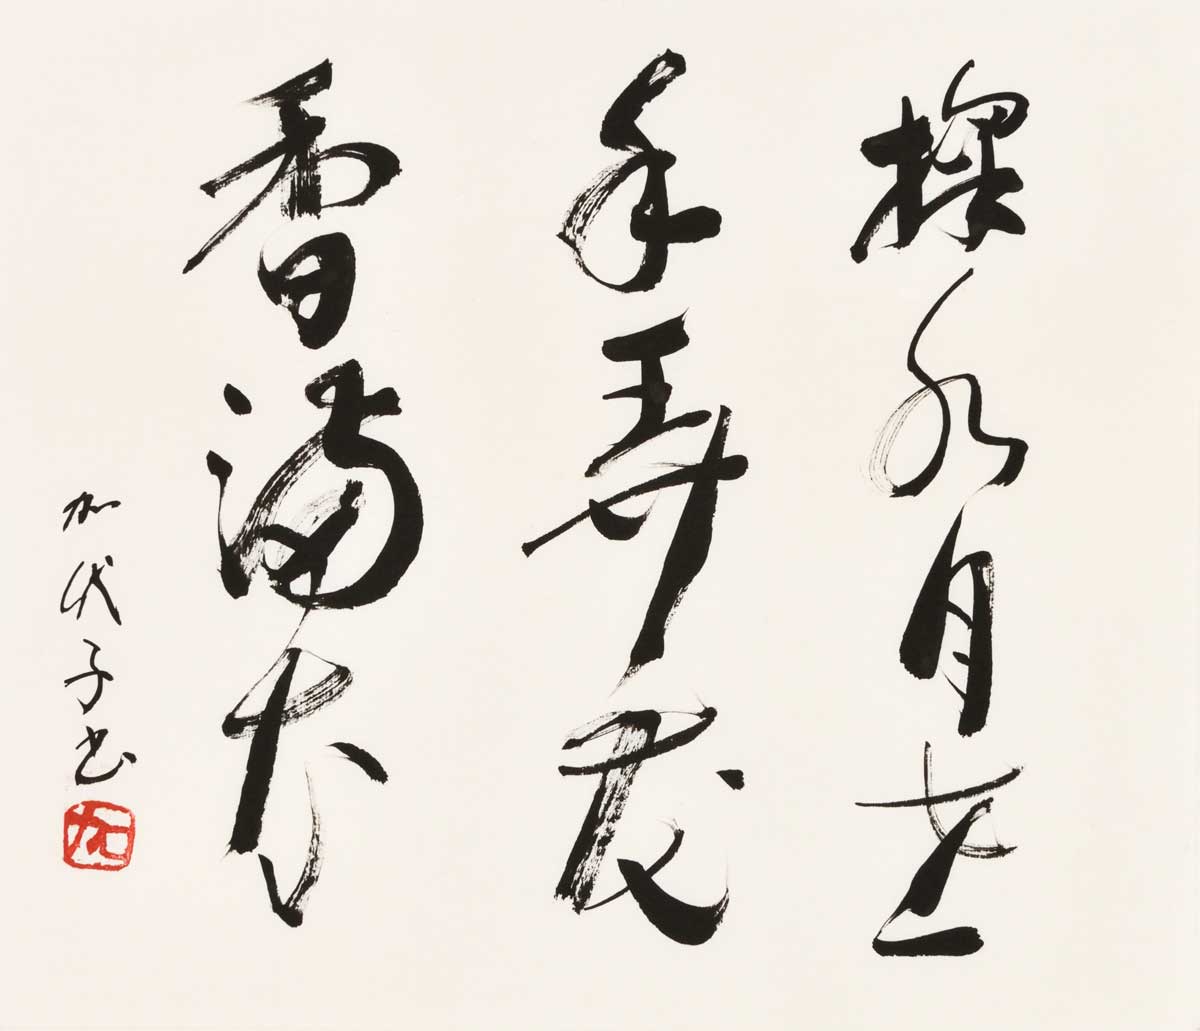 掬水月在
手弄花
香満衣
加代子書
加